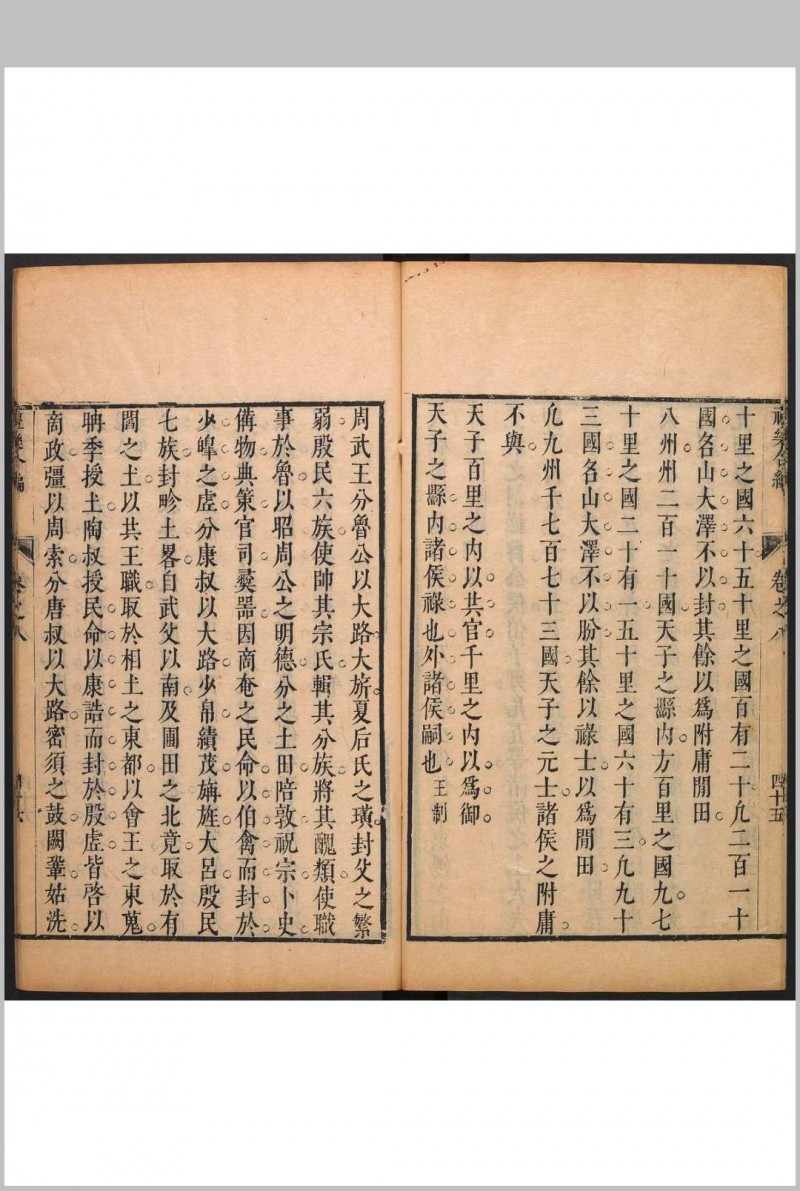 禮樂合編
卷之八
四十五
十里之國六十五十里之國百有二十凡二百一十
國名山大澤不以封其餘以爲附庸閒田
八州州二百一十國天子之縣內方百里之國九七
十里之國二十有一五十里之國六十有三凡九十
三國名山大澤不以肦其餘以祿士以爲閒田
凡九州千七百七十三國天子之元士諸侯之附庸
不與
天子百里之內以共官千里之內以爲御
天子之縣內諸侯祿也外諸侯嗣也王制
周武王分魯公以大路大旂夏后氏之璜封父之繁
弱殷民六族使帥其宗氏輯其分族將其醜類使職
事於魯以昭周公之明德分之土田陪敦祝宗卜史
備物典策官司彝器因商奄之民命以伯禽而封於
少皞之虛分康叔以大路少帛績茂旃旌大呂殷民
七族封畛土畧自武父以南及圃田之北竟取於有
閻之土以共王職取於相土之東都以會王之東蒐
聃季授土陶叔授民命以康誥而封於殷虛皆啓以
商政疆以周索分唐叔以大路密須之鼓闕鞏姑洗
卷之八